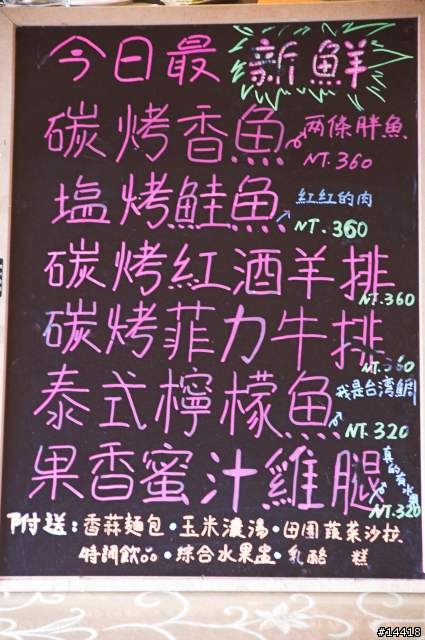 今日最 新鮮
碳烤香魚 两條胖魚
NT.360
塩烤鮭魚 紅紅的肉
NT.360
碳烤紅酒羊排
NT.360
碳烤菲力牛排
NT.360
泰式檸檬魚 我是台灣鯛
NT.320
果香蜜汁雞腿 真的有水果
NT.320
附送:香蒜麵包·玉米濃湯·田園蔬菜沙拉
特調飲品·綜合水果盅·乳酪 糕
#14418